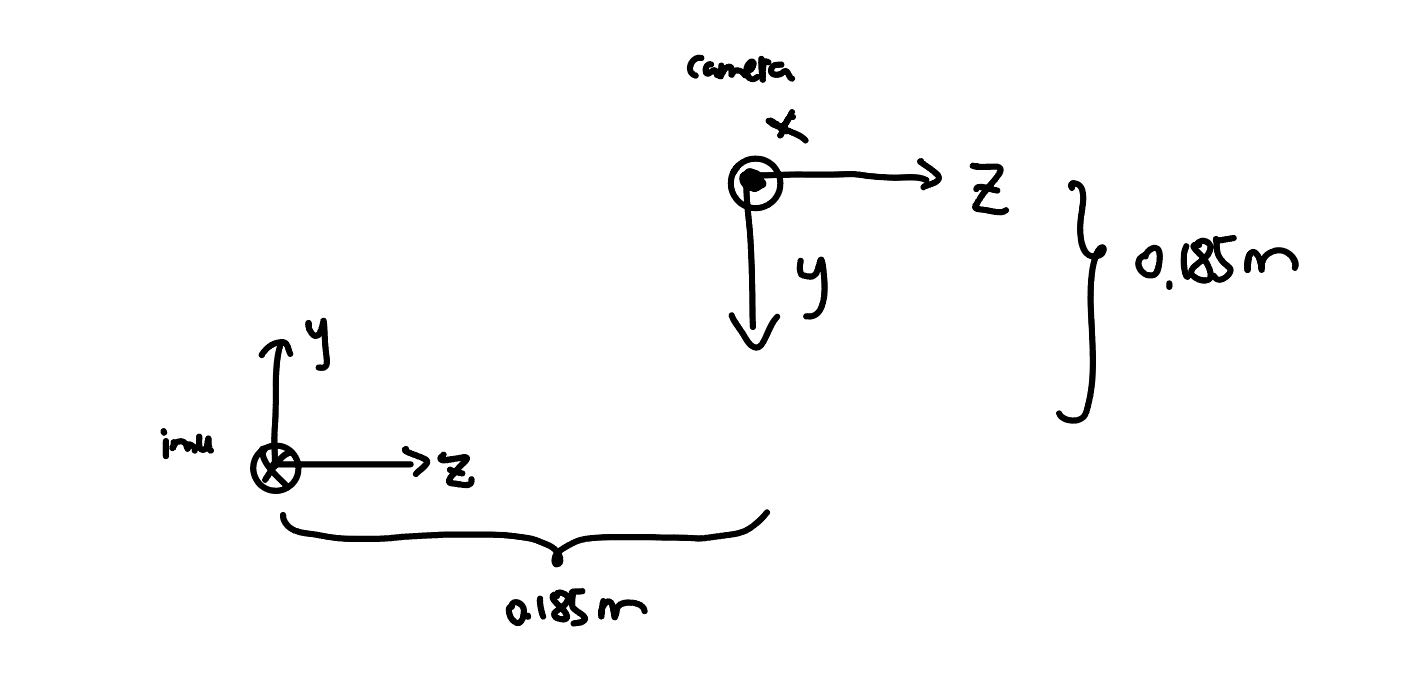 camera
x
z
y
0.185m
y
imu
z
0.185m